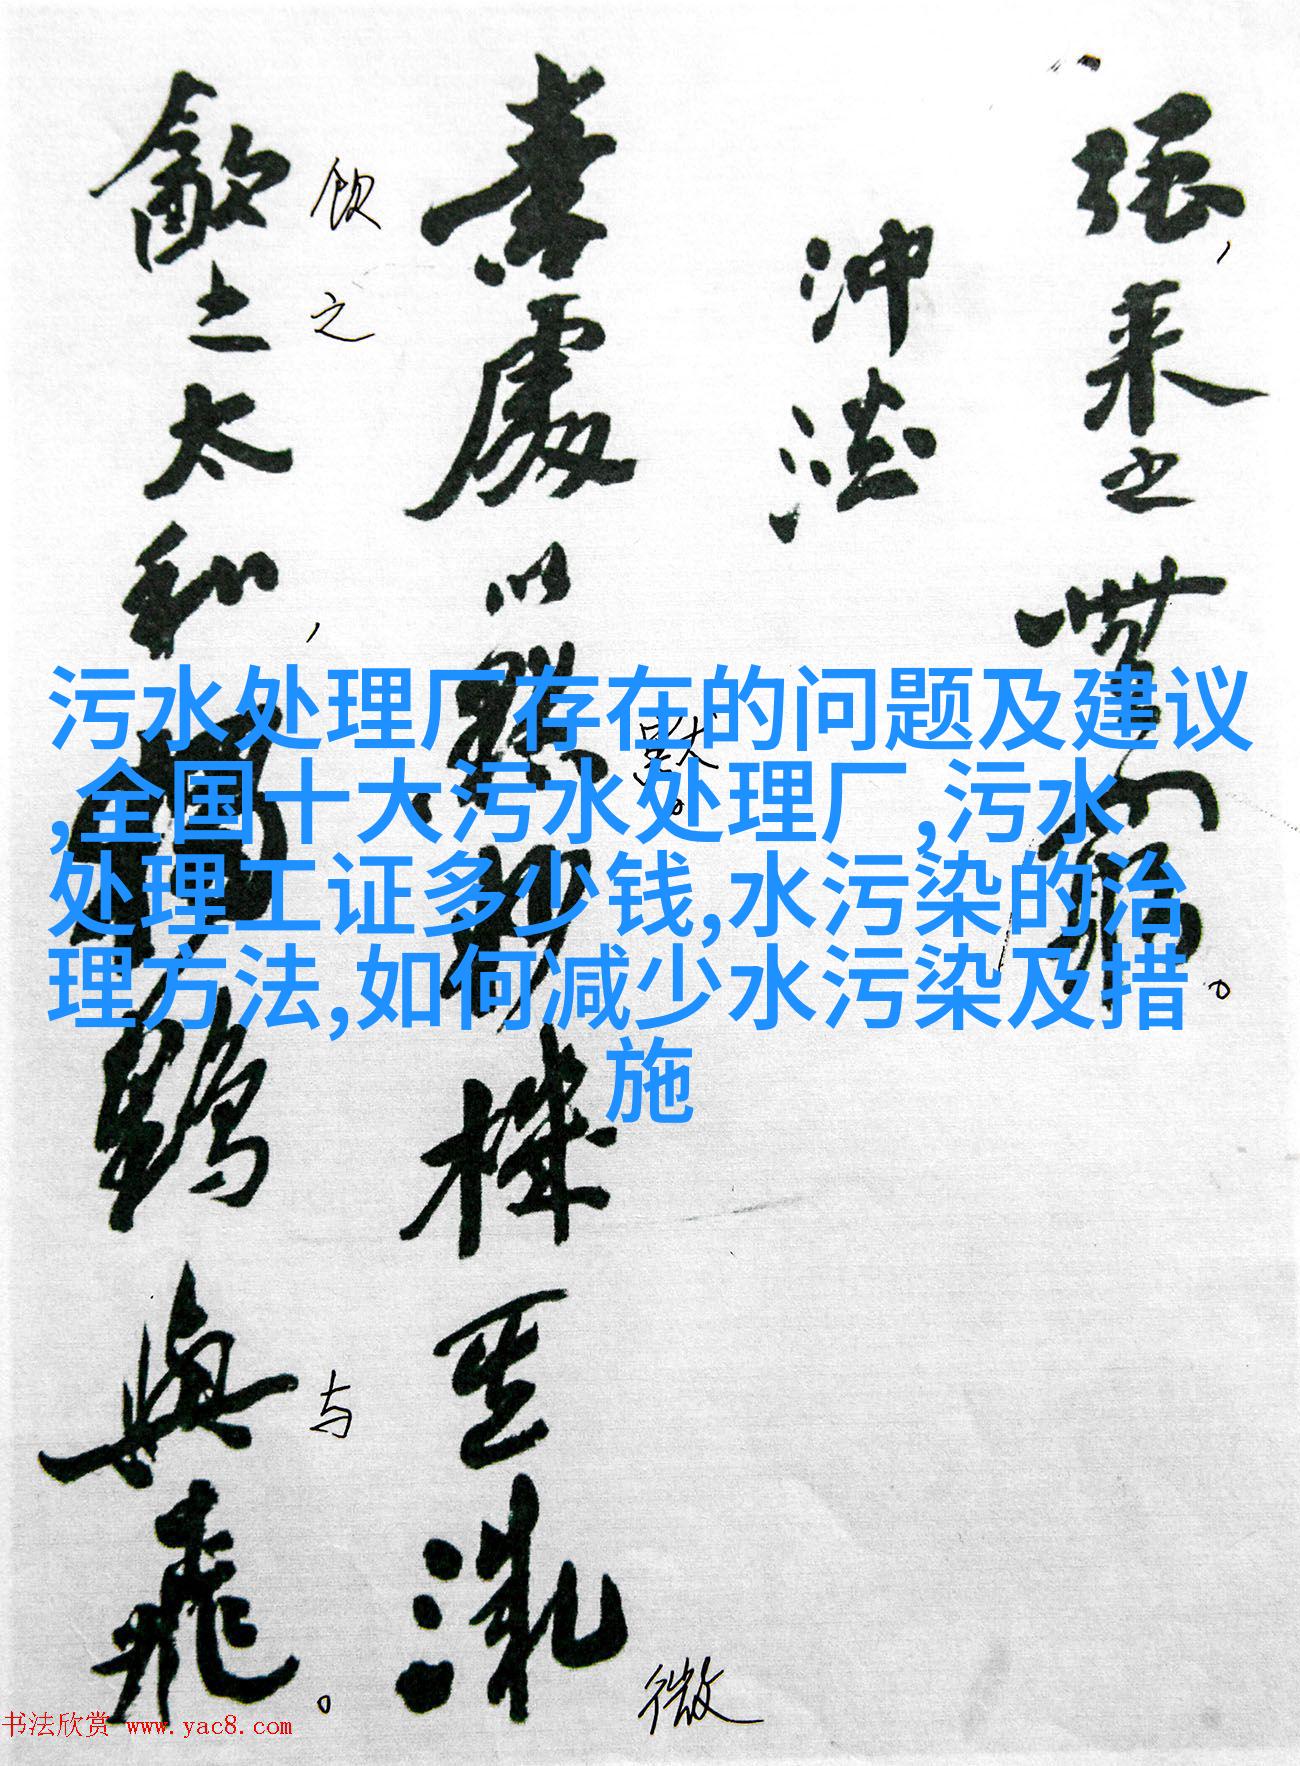 强,来之無窮。
冲澹
素處以默妙機其微
默。
微
飲之太和,獨鶴與飛。
饮之
与
污水处理厂存在的问题及建议
,全国十大污水处理厂,污水
处理工证多少钱,水污染的治
理方法,如何减少水污染及措
施
书法欣赏 www.yac8.com